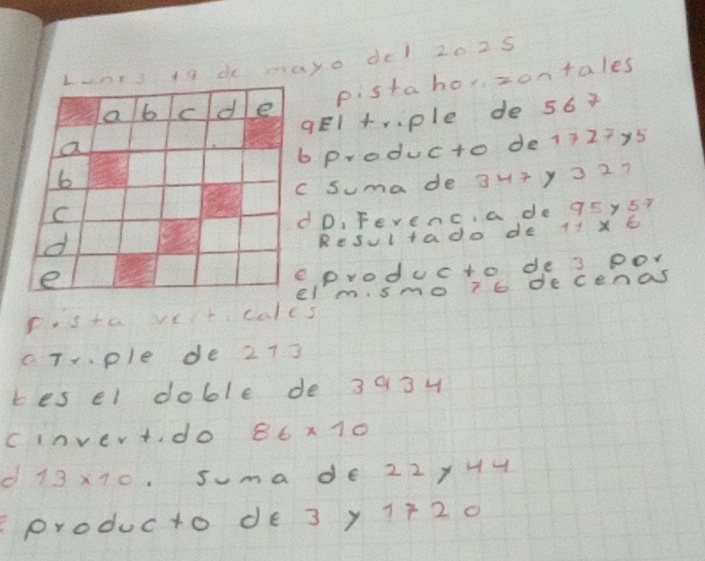 Lunes 19 de mayo del 2025
pista horizontales
a b c d e
a
b
c
d
e
a El triple de 567
b producto de 1727 y 5
c suma de 347 y 321
d Diferencia de 95 y 57
Resultado de 11 x 6
e producto de 3 por
el mismo 76 decenas
pista verticales
a Triple de 213
b es el doble de 3934
c invertido 86 x 10
d 13 x 10. suma de 22 y 44
e producto de 3 y 1720